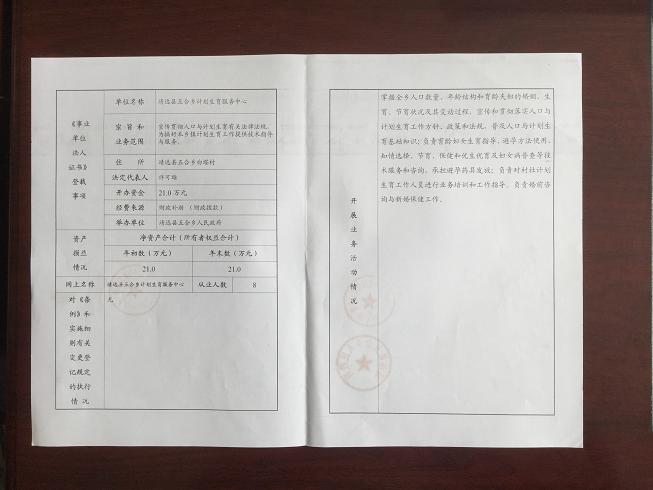 《事业
单位
法人
证书》
登载
事项
单位名称
靖远县五合乡计划生育服务中心
宗旨和
业务范围
宣传贯彻人口与计划生育有关法律法规,
为搞好本乡镇计划生育工作提供技术指导
与服务。
住所
靖远县五合乡白塔村
法定代表人
许可雄
开办资金
21.0 万元
经费来源
财政补助 (财政拨款)
举办单位
靖远县五合乡人民政府
资产
损益
情况
净资产合计(所有者权益合计)
年初数(万元)
年末数(万元)
21.0
21.0
网上名称
靖远县五合乡计划生育服务中心
从业人数
8
对《条
例》和
实施细
则有关
变更登
记规定
的执行
情况
无
开展业务活动情况
掌握全乡人口数量、年龄结构和育龄夫妇的婚姻、生
育、节育状况及其变动过程,宣传和贯彻落实人口与
计划生育工作方针、政策和法规,普及人口与计划生
育基础知识;负责育龄妇女生育指导、避孕方法使用、
知情选择、节育、保健和优生优育及妇女病普查等技
术服务和咨询,承担避孕药具发放;负责对村社计划
生育工作人员进行业务培训和工作指导,负责婚前咨
询与新婚保健工作。